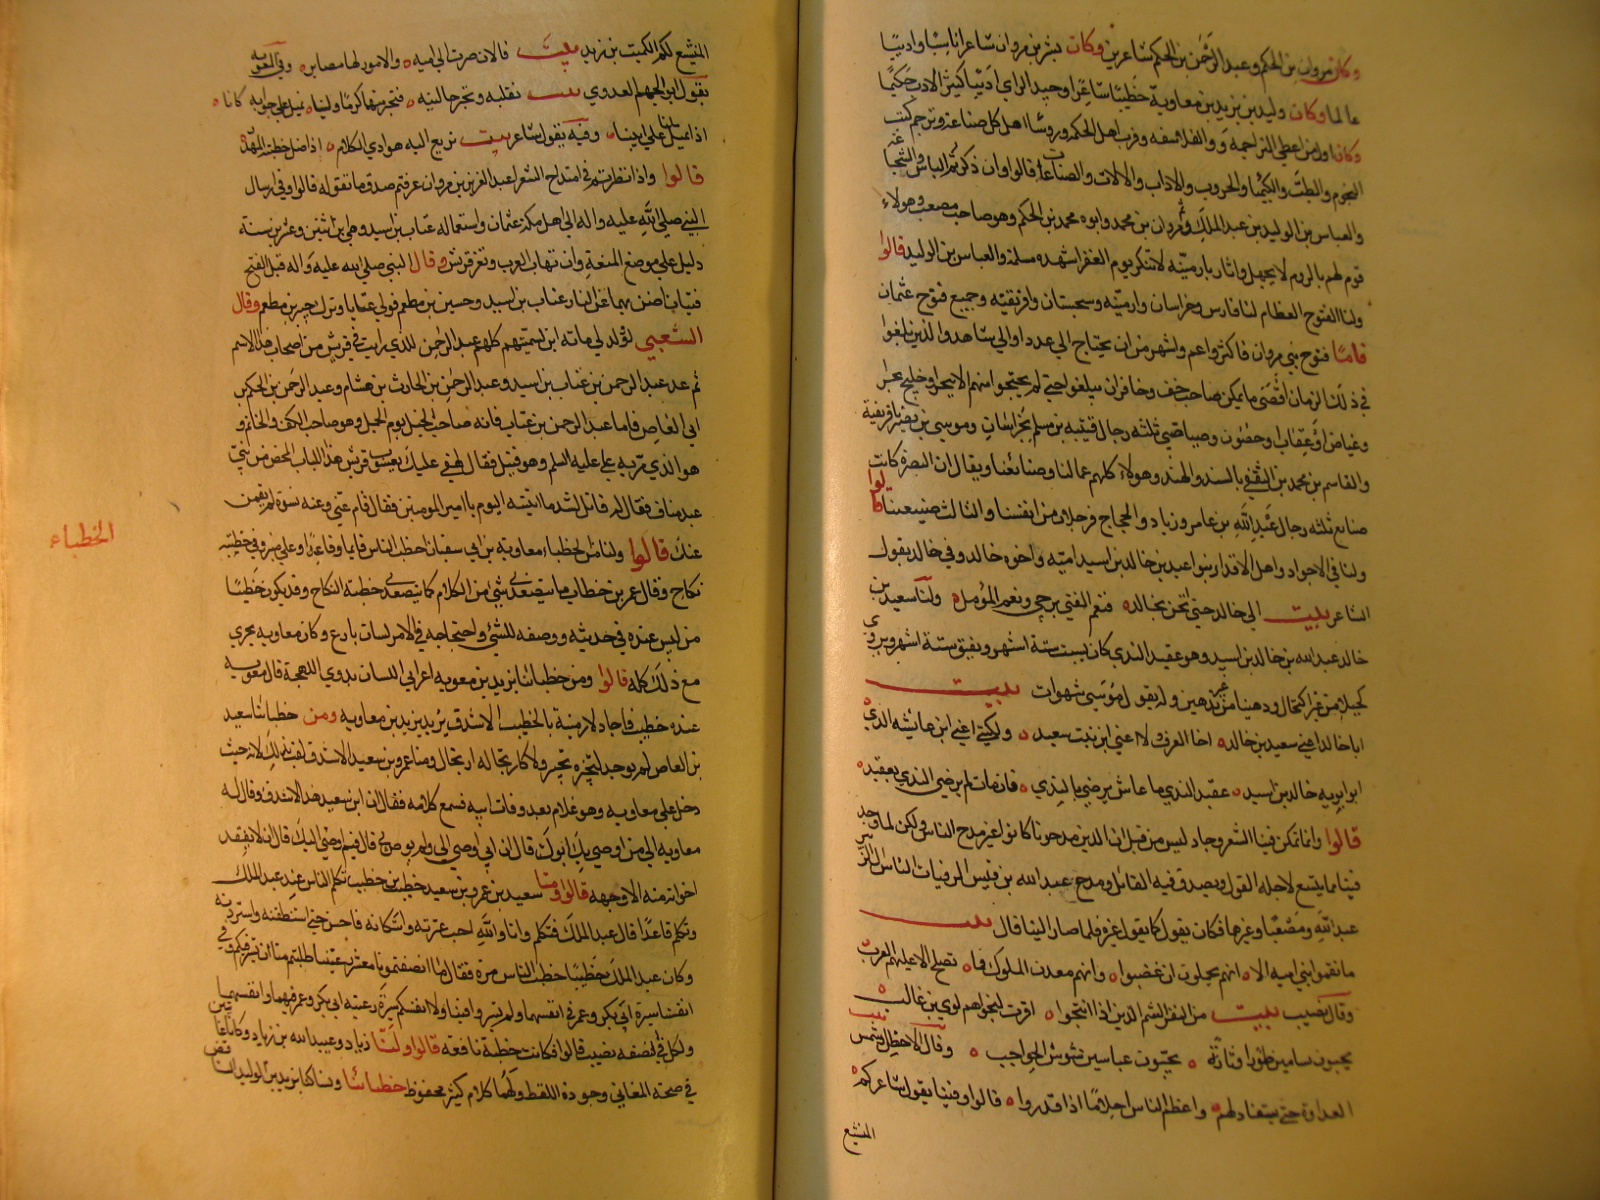 وكان مروان بن الحكم وعبد الرحمن بن الحكم شاعرين وكان بشر بن مروان شاعرا ناسبا واديبا
عالما وكان وليد بن يزيد بن معاوية خطيبا شاعرا وجيد الراي اديبا كثير الادب حكيما
وكان اول من اعطي التراجمة والفلاسفه وقرب اهل الحكمه وروسا اهل كل صناعة وترجم كتب
النجوم والطب والكيميا والحروب والاداب والالات والصناعات قالوا وان ذكرتم الباس والشجاعة
والعباس بن الوليد بن عبد الملك ومروان بن محمد وابوه محمد بن الحكم وهو صاحب مصعب وهولاء
قوم لهم بالروم لا يجهل واثار بارمينه لا تنكر يوم العقر اشهده مسلمة والعباس بن الوليد قالوا
ولنا الفتوح العظام لنا فارس وخراسان وارمينه وسجستان وافريقيه وجميع فتوح عثمان
فاما فتوح بني مروان فاكثر واعم واشهر من ان يحتاج الي عدد او الي شاهد والذين بلغوا
في ذلك الزمان اقصى ما يمكن صاحب خف وحافر ان يبلغه حتى لم يحتجزوا منهم الا ببحر او خليج بحر
وغياض او عقاب او حصون وصياصي ثلثه رجال قتيبه بن مسلم بخراسان وموسى بن نصير بافريقية
والقاسم بن محمد بن الثقفي بالسند والهند وهولاء كلهم عمالنا وصنائعنا ويقال ان البصرة كانت
صنايع ثلثه رجال عبد الله بن عامر وزياد والحجاج فرجلان من انفسنا والثالث صنيعنا قالوا
ولنا في الاجواد واهل الاقدار بنوا عبد الله بن خالد بن اسيد اميه واخوه خالد وفي خالد يقول
الشاعر بيت الي خالد حتى انخن بخالد فنعم الفتى يرجى ونعم المؤمل ولنا سعيد بن
خالد عبد الله بن خالد بن اسيد وهو عقيد الندي كان يسبت ستة اشهر ويفيق ستة اشهر ويري
كحيلا من غير اكتحال ودهينا من غير تدهين وله يقول موسي شهوات بيت
ابا خالد اعني سعيد بن خالد اخا العرف لا اعني ابن بنت سعيد ولكنني اعني ابن عائشه الذي
ابو ابويه خالد بن اسيد عقيد الندي ما عاش يرضي بالندي فان مات لم يرضى الندي بعقيد
قالوا وانما تمكن فينا الشعر وجاد ليس من قبل ان الذين مدحونا كانوا غير مدح الناس ولكن لما وجد
فينا مما يتسع لاجله القول ويصدق فيه القائل وقد مدح عبد الله بن قيس الرقيات الناس ال الزبير
عبد الله ومصعبا وغيرها فكان يقول كما يقول غيره فلما صار الينا قال بيت
ما نقموا بني اميه الا انهم يحلمون ان غضبوا وانهم معدن الملوك فلا تصلح الا عليهم العرب
وقال نصيب بيت من النفر الشم الذين اذا انتجوا اقرت لنجواهم لوي بن غالب
يحيون بسامين طورا وتارة يحيون عباسين شوش الحواجب وقال الاخطل بيت شمس
العداوة حتى يستفاد لهم واعظم الناس احلاما اذا قدروا قالوا وفينا يقول شاعركم
المتشيع
المتشيع لكم الكميت بن زيد بيت فالان صرت الي اميه والامور لها مصاير وفي معويه
يقول ابن الجهم العدوي بيت نقلبه ونخبر حالتيه فنخبر منهما كرما ولينا نميل على جوانبه كانا
اذا نميل على ابينا وفيه يقول شاعر بيت تريع اليه هوادي الكلام اذا ضل خطبته المهذر
قالوا واذا نظرتم في امتداح الشعرا عبد العزيز بن مروان عرفتم صدق ما نقوله قالوا وفي ارسال
النبي صلي الله عليه واله الي اهل مكة عثمان واستعماله عتاب بن اسيد وهو ابن اثنتين وعشرين سنة
دليل على موضع المنعة وان تهاب العرب وتعز قريش وقال النبي صلى الله عليه واله قبل الفتح
فتيان اضن بهما عن النار عتاب بن اسيد وحسين بن مطعم فولي عتابا وترك جبير بن مطعم وقال
الشعبي لو ولد لي مائة ابن لسميتهم كلهم عبد الرحمن للذي رايت في قريش من اصحاب هذا الاسم
ثم عد عبد الرحمن بن عتاب بن اسيد وعبد الرحمن بن الحارث بن هشام وعبد الرحمن بن الحكم بن
ابي العاص فاما عبد الرحمن بن عتاب فانه صاحب الخيل يوم الجمل وهو صاحب الكف والخاتم و
هو الذي مر به علي عليه السلم وهو قتيل فقال لهفي عليك يعسوب قريش هذا اللباب المحض من بني
عبد مناف فقال له قائل لشد ما اتيته اليوم يا امير المومنين فقال قام عني وعنه نسوة لم يقمن
عنك قالوا ولنا من الخطباء معاوية بن ابي سفيان اخطب الناس قايما وقاعدا وعلي منبر وفي خطبة
الخطباء
نكاح وقال عمر بن خطاب ما يتصعدني شيء من الكلام كما يتصعدني خطبة النكاح وقد يكون خطيبا
من ليس عنده في حديثه ووصفه للشئ واحتجاجه في الامر لسان بارع وكان معاوية يجري
مع ذلك كله قالوا ومن خطبائنا يزيد بن معويه اعرابي اللسان بدوي اللهجة قال معويه
عنده خطيب فاجاد لارمينه بالخطيب الاشدق يريد يزيد بن معاويه ومن خطبائنا سعيد
بن العاص لم يوجد لتحبيره تحبير ولا كارتجاله ارتجال ومنا عمرو بن سعيد الاشدق لقب بذلك لانه حيث
دخل على معاويه وهو غلام بعد وفات ابيه فسمع كلامه فقال ان ابن سعيد هذا الاشدق وقال له
معاويه الي من اوصى بك ابوك قال ان ابي اوصى الي ولم يوص بي قال فبم اوصى اليك قال ان لا يفقد
اخوانه منه الا وجهه قالوا ومنا سعيد بن عمرو بن سعيد خطيب بن خطيب تكلم الناس عند عبد الملك
وتكلم قاعدا قال عبد الملك فتكلم وانا والله احب عثرته واسكاته فاحسن حتى استنطقته واستزدته
وكان عبد الملك خطيبا خطب الناس مرة فقال ما انصفتمونا معشر رعيتنا طلبتم منا ان نسير فيكم وفي
انفسنا سيرة ابي بكر وعمر في انفسهما ولم تسيروا فينا ولا انفسكم سيرة رعيته ابي بكر وعمر فيهما وانفسهما
ولكل في انصفه نصيب قالوا فكانت خطبة نافعة قالوا ولنا زياد وعبيد الله بن زياد وكانا غنيين
في صحة المعاني وجودة اللفظ ولهما كلام كثير محفوظ خطبائنا ونساكنا يزيد بن الوليد الناقص